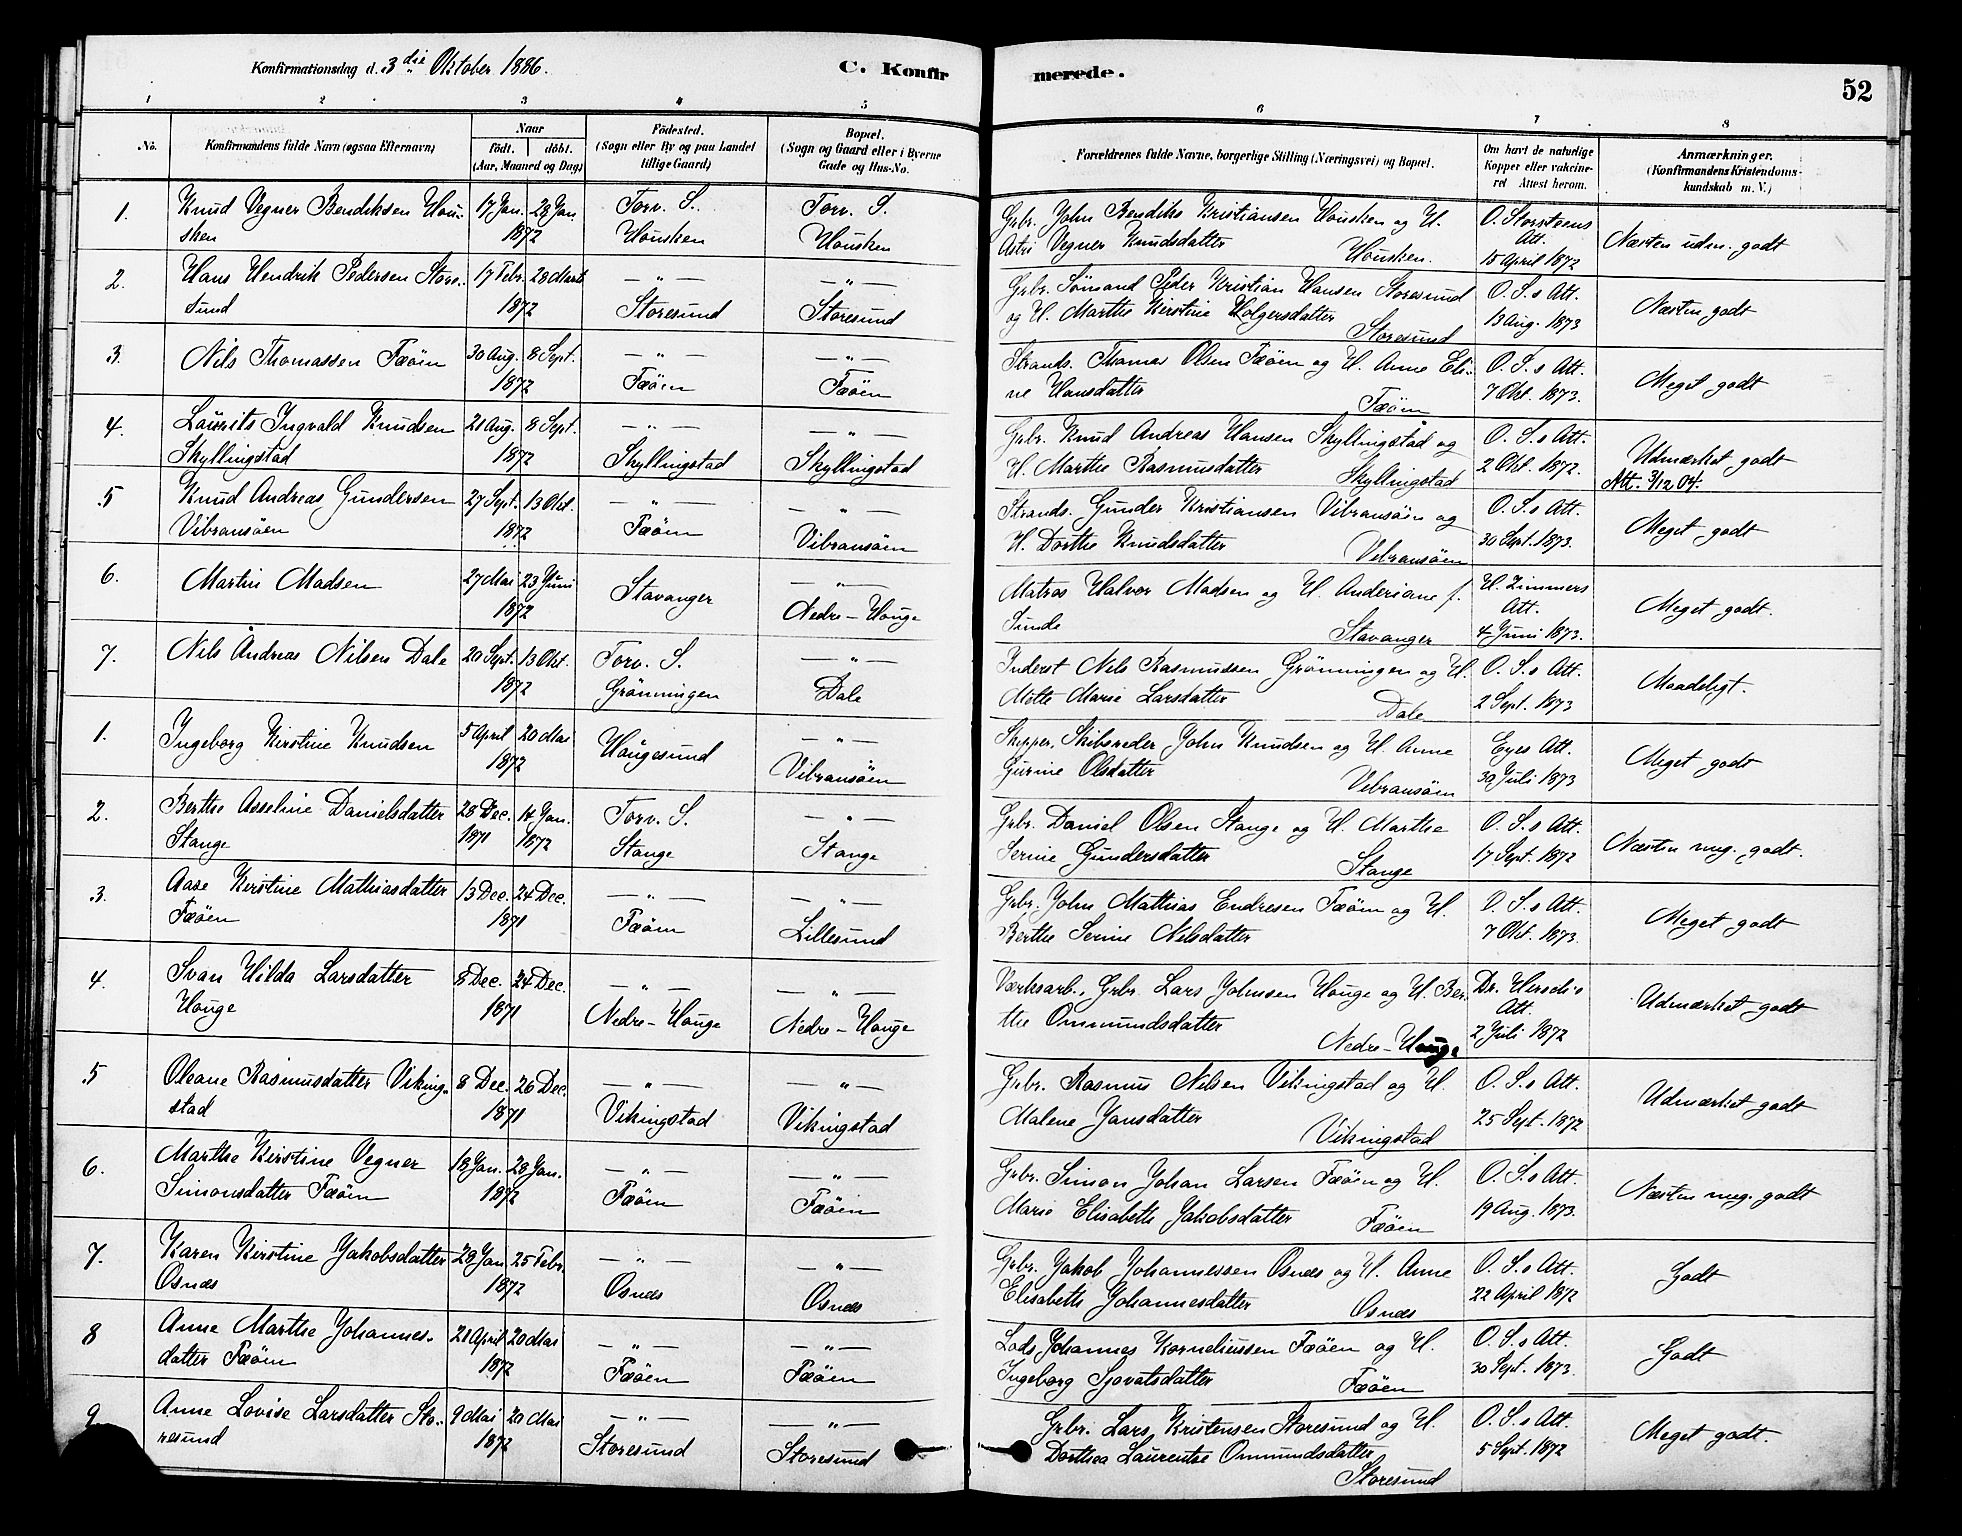 Konfirmationsdag d. 3die Oktober 1886.
C. Konfir
merede.
52
1 2 3 4 5 6 7 8
No.
Konfirmandens fulde Navn (ogsaa Efternavn)
Naar
födt. döbt.
(Aar, Maaned og Dag)
Födested.
(Sogn eller By og paa Landet
tillige Gaard)
Bopæl.
(Sogn og Gaard eller i Byerne
Gade og Hus-No.
Forældrenes fulde Navne, borgerlige Stilling (Næringsvei) og Bopæl.
Om havt de naturlige
Kopper eller vakcine-
ret Attest herom.
Anmærkninger.
(Konfirmandens Kristendoms-
kundskab m. V.)
1. Knud Vegner Bendiksen Hou- 17 Jan. 28 Jan Torv. S. Torv. S. Grbr. John Bendiks Kristiansen Housken og H. O. Storsteens
sken 1872 Housken Housken Astri Vegner Knudsdatter Housken. Att. 15 April 1872 Næsten udm. godt
2. Hans Hendrik Pedersen Store- 17 Febr. 28 Marts — " — — " — Grbr. Sömand Peder Kristian Hansen Storesund O. S.s Att.
sund 1872 Storesund Storesund og H. Marthe Kirstine Holgersdatter Storesund 13 Aug. 1873 Næsten godt
3. Nils Thomassen Fæöen 30 Aug. 8 Sept. — " — — " — Strands. Thomas Olsen Fæöen og H. Anne Eli- O. S.s Att.
1872 Fæöen Fæöen ne Hansdatter Fæöen 7 Okt. 1873. Meget godt
4. Laurits Ingvald Knudsen 21 Aug. 8 Sept. — " — — " — Grbr. Knud Andreas Hansen Skyllingstad og O. S.s Att.
Skyllingstad 1872 Skyllingstad Skyllingstad H. Marthe Rasmusdatter Skyllingstad 2 Okt. 1872. Udmærket godt
Att. 3/12 04.
5 Knud Andreas Gundersen 27 Sept. 13 Okt. — " — — " — Strands. Gunder Kristiansen Vibransöen og O. S.s Att.
Vibransöen 1872 Fæöen Vibransöen H. Dorthe Knudsdatter Vibransöen 30 Sept. 1873. Meget godt
6. Martin Madsen 27 Mai 23 Juni Stavanger — " — Matros Halvor Madsen og H. Anderiane f. H. Zimmers
1872 Nedre-Houge Sunde Stavanger Att. 4 Juni 1873. Meget godt.
7. Nils Andreas Nilsen Dale 20 Sept. 13 Okt. Torv. S. — " — Inderst Nils Rasmussen Grönningen og H. O. S.s Att.
1872 Grönningen Dale Mette Marie Larsdatter Dale 2 Sept. 1873 Maadeligt.
1. Ingeborg Kirstine Knudsen 5 April 20 Mai Hougesund — " — Skipper, Skibsreder John Knudsen og H. Anne Eyes Att.
1872 Vibransöen Gurine Olsdatter Vibransöen 30 Juli 1873 Meget godt
2. Berthe Asseline Danielsdatter 28 Dec. 14 Jan. Torv. S. — " — Grbr. Daniel Olsen Stange og H. Marthe O. S.s Att.
Stange 1871 1872 Stange Stange Serine Gundersdatter Stange 17 Sept. 1872 Næsten meg. godt.
3. Aase Kirstine Mathiasdatter 13 Dec. 24 Dec. — " — — " — Grbr. John Mathias Endresen Fæöen og H. O. S.s Att.
Fæöen 1871 Fæöen Lillesund Berthe Serine Nilsdatter 7 Okt. 1873. Meget godt
4. Svan Hilda Larsdatter 8 Dec. 24 Dec. — " — — " — Værksarb., Grbr. Lars Johnsen Houge og H. Ber-
Houge 1871 Nedre-Houge Nedre-Houge the Ommundsdatter Nedre-Houge Att. 2 Juli 1872 Udmærket godt
5 Oleane Rasmusdatter Viking- 8 Dec. 26 Dec. — " — — " — Grbr. Rasmus Nilsen Vikingstad og H. O. S.s Att.
stad 1871 Vikingstad Vikingstad Malene Jansdatter Vikingstad 25 Sept. 1872 Udmærket godt
6. Marthe Kirstine Vegner 18 Jan. 28 Jan. — " — — " — Grbr. Simon Johan Larsen Fæöen og H. O. S.s Att.
Simonsdatter Fæöen 1872 Fæöen Fæöen Marie Elisabeth Jakobsdatter Fæöen 19 Aug. 1873. Næsten meg. godt
7. Karen Kirstine Jakobsdatter 29 Jan. 25 Febr. — " — — " — Grbr. Jakob Johannessen Osnes og H. Anne O. S.s Att.
Osnæs 1872 Osnes Osnes Elisabeth Johannesdatter Osnes 22 April 1872 Godt
8 Anne Marthe Johannes- 21 April 20 Mai — " — — " — Lods Johannes Korneliussen Fæöen og H. O. S.s Att.
datter Fæöen 1872 Fæöen Fæöen Ingeborg Sjovatsdatter Fæöen 30 Sept. 1873. Godt
9 Anne Lovise Larsdatter Sto- 9 Mai 20 Mai — " — — " — Grbr. Lars Kristensen Storesund og H. O. S.s Att.
resund 1872 Storesund Storesund Dorthea Laurentse Ommundsdatter Storesund 5 Sept. 1872 Meget godt